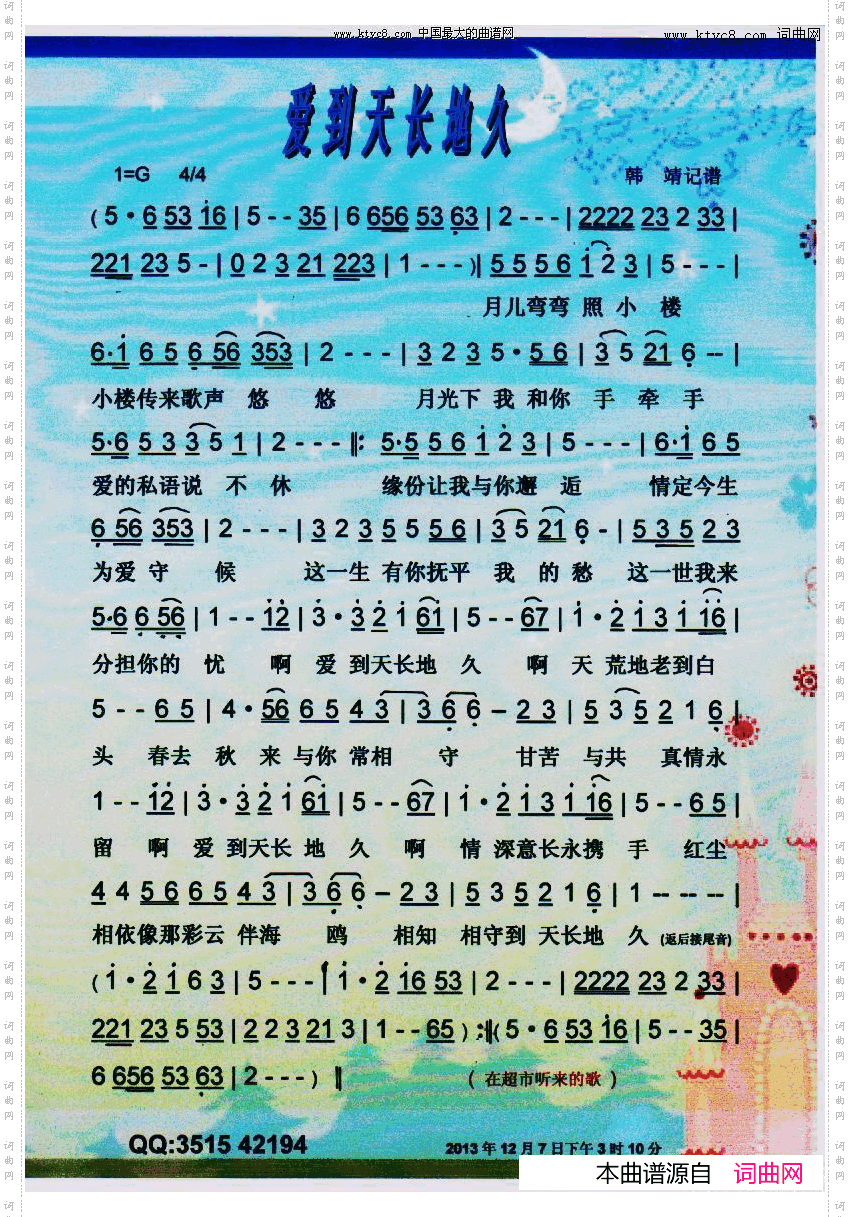 www.ktyc8.com 中国最大的曲谱网
www.ktyc8.com 词曲网
爱到天长地久
1=G 4/4 韩 靖记谱
( 5 · 6 53 16 | 5 - - 35 | 6 656 53 63 | 2 - - - | 2222 23 2 33 |
221 23 5 - | 0 2 3 21 223 | 1 - - - ) | 5 5 5 6 1 2 3 | 5 - - - |
月儿弯弯 照 小 楼
6·1 6 5 6 56 353 | 2 - - - | 3 2 3 5·5 6 | 3 5 21 6 -- |
小楼传来歌声 悠 悠 月光下 我 和你 手 牵 手
5·6 5 3 3 5 1 | 2 - - - |: 5·5 5 6 1 2 3 | 5 - - - | 6·1 6 5
爱的私语说 不 休 缘份让我与你邂 逅 情定今生
6 56 353 | 2 - - - | 3 2 3 5 5 5 6 | 3 5 21 6 - | 5 3 5 2 3
为爱 守 候 这一生 有你抚平 我 的 愁 这一世我来
5·6 6 56 | 1 - - 12 | 3·3 2 1 61 | 5 - - 67 | 1·2 1 3 1 16 |
分担你的 忧 啊 爱 到天长地 久 啊 天 荒地老到白
5 - - 6 5 | 4·56 6 5 4 3 | 3 6 6 – 2 3 | 5 3 5 2 1 6 |
头 春去 秋 来 与你 常相 守 甘苦 与共 真情永
1 - - 12 | 3·3 2 1 61 | 5 - - 67 | 1·2 1 3 1 16 | 5 - - 6 5 |
留 啊 爱 到天长 地 久 啊 情 深意长永携 手 红尘
4 4 5 6 6 5 4 3 | 3 6 6 – 2 3 | 5 3 5 2 1 6 | 1 -- -- -- |
相依像那彩云 伴海 鸥 相知 相守到 天长地 久 (返后接尾音)
( 1·2 1 6 3 | 5 - - - | 1·2 16 53 | 2 - - - | 2222 23 2 33 |
221 23 5 53 | 2 2 3 21 3 | 1 - - 65 ) :|( 5·6 53 16 | 5 - - 35 |
6 656 53 63 | 2 - - - ) | ( 在超市听来的歌 )
QQ:3515 42194 2013 年 12 月 7 日下午 3 时 10 分
本曲谱源自 词曲网